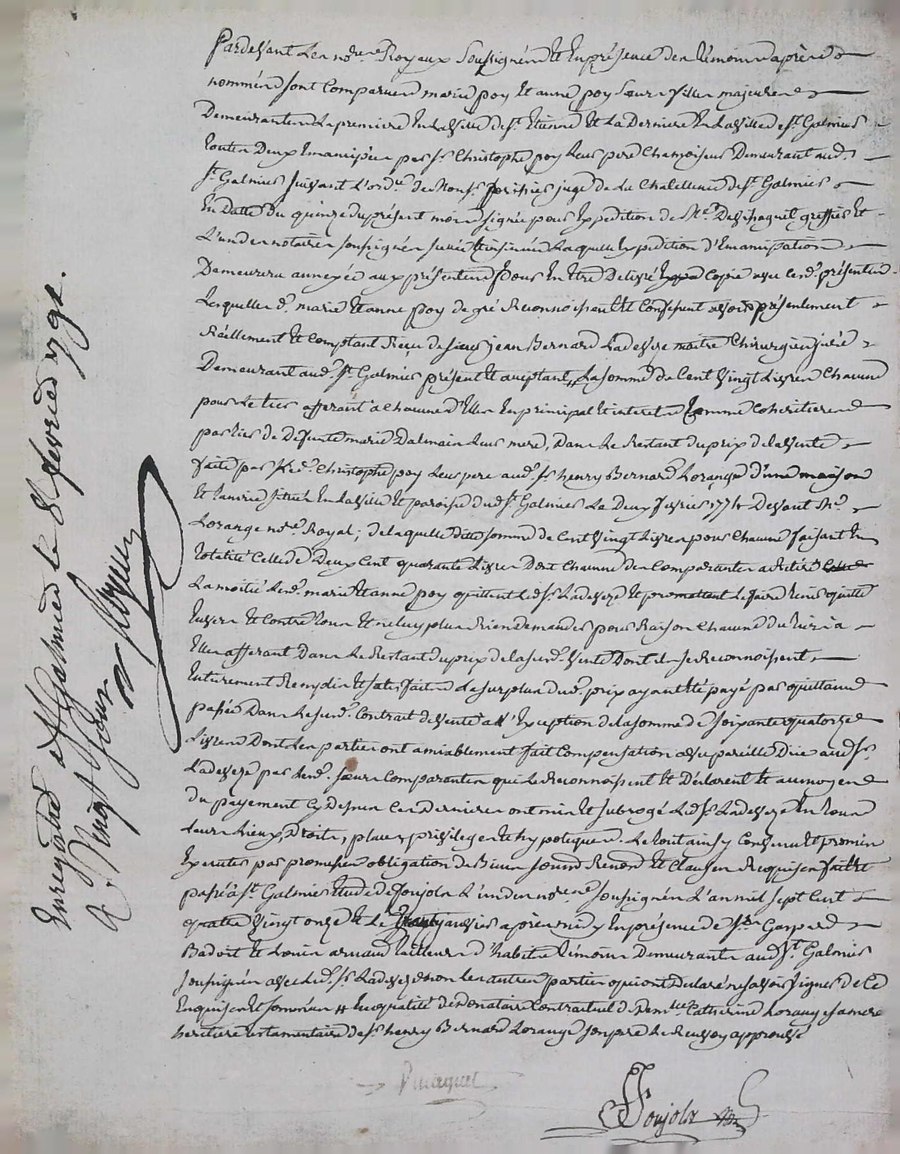 Pardevant Les no.res Royaux Soussignés Et En présence des témoins après
nommés sont Comparues marie poy Et anne poy sœurs filles majeures
Demeurantes La premiere En La ville de st. Etienne Et La Derniere En La ville de st. Galmier
toutes Deux Emancipées par sr. Christophe poy Leur pere Chamoiseur Demeurant aud.
st. Galmier suivant L'ord.ce de juge de La Chatellenie de st. Galmier
En Datte du quinze du présent mois signée pour Expedition de greffier Et
L'un des notaires soussignés Laquelle Expedition d'Emancipation
Demeurera annexée aux présentes pour En Etre Delivré Copie avec Les d. présentes
Lesquelles d. marie Et anne poy de gré Reconnoissent Et Confessent avoir présentement
Réellement Et Comptant Reçu de sieur jean Bernard Ladevese maitre Chirurgien juré
Demeurant aud. st. Galmier présent Et acceptant, La somme de Cent vingt Livres Chacune
pour Le tiers afferant à Chacune d'Elles En principal Et interets Comme Coheritieres
par tiers de Defunte marie Dalmais Leur mere, Dans Le Restant du prix de La vente
faite par Led. Christophe poy Leur pere aud. sr. henry Bernard Lorange d'une maison
Et située En La ville Et paroisse dud. st. Galmier Le Deux 1774 Devant Me.
Lorange no.re Royal; de Laquelle ditte somme de Cent vingt Livres pour Chacune faisant En
totalité Celle de Deux Cent quarante Livres Dont Chacune des Comparantes a Retiré
La moitié Les d. marie Et anne poy quittent Led. sr. Ladevese Et promettent Le faire tenir quitte
Envers Et Contre tous Et ne Luy plus Rien demander pour Raison Chacune du tiers à
Elle afferant Dans Le Restant du prix de La susd. vente Dont Elles se Reconnoissent
Entierement Remplies Et satisfaites Le surplus dud. prix ayant Eté payé par quittance
passée Dans Le susd. Contrat de vente à L'Exception de La somme de soixante quatorze
Livres Dont Les parties ont amiablement fait Compensation avec pareille Due aud. sr.
Ladevese par Les d. sœurs Comparantes qui Le Reconnoissent Et Déclarent Et au moyen
du payement Cy Dessus Ces Dernieres ont mis Et subrogé Led. sr. Ladevese En tous
Leurs Lieux, Droits, place, privilege Et hypoteques. Le tout ainsy Convenu Et promis
Executer par promesses obligation de Biens soums Renons Et Clauses Requises fait Et
passé à st. Galmier Etude de Soujola L'un des no.res soussignés L'an mil sept Cent
quatre vingt onze Et Le janvier après midy En présence de sr. Gaspard
Badoit Et Louis arnaud tailleur d'habits témoins Demeurants aud. st. Galmier
soussignés avec Led. sr. Ladevese non Les autres parties qui ont Declaré ne savoir signer de Ce
Enquises Et sommées # En qualité de donataire Contractuel de Dem.lle Catherine Lorange sa mere
heritiere testamentaire de sr. henry Bernard Lorange son pere Le Renvoy approuvé
Soujola no.re
Enregistré à st Galmier le 8 fevrier 1791.
R. Vingt sous